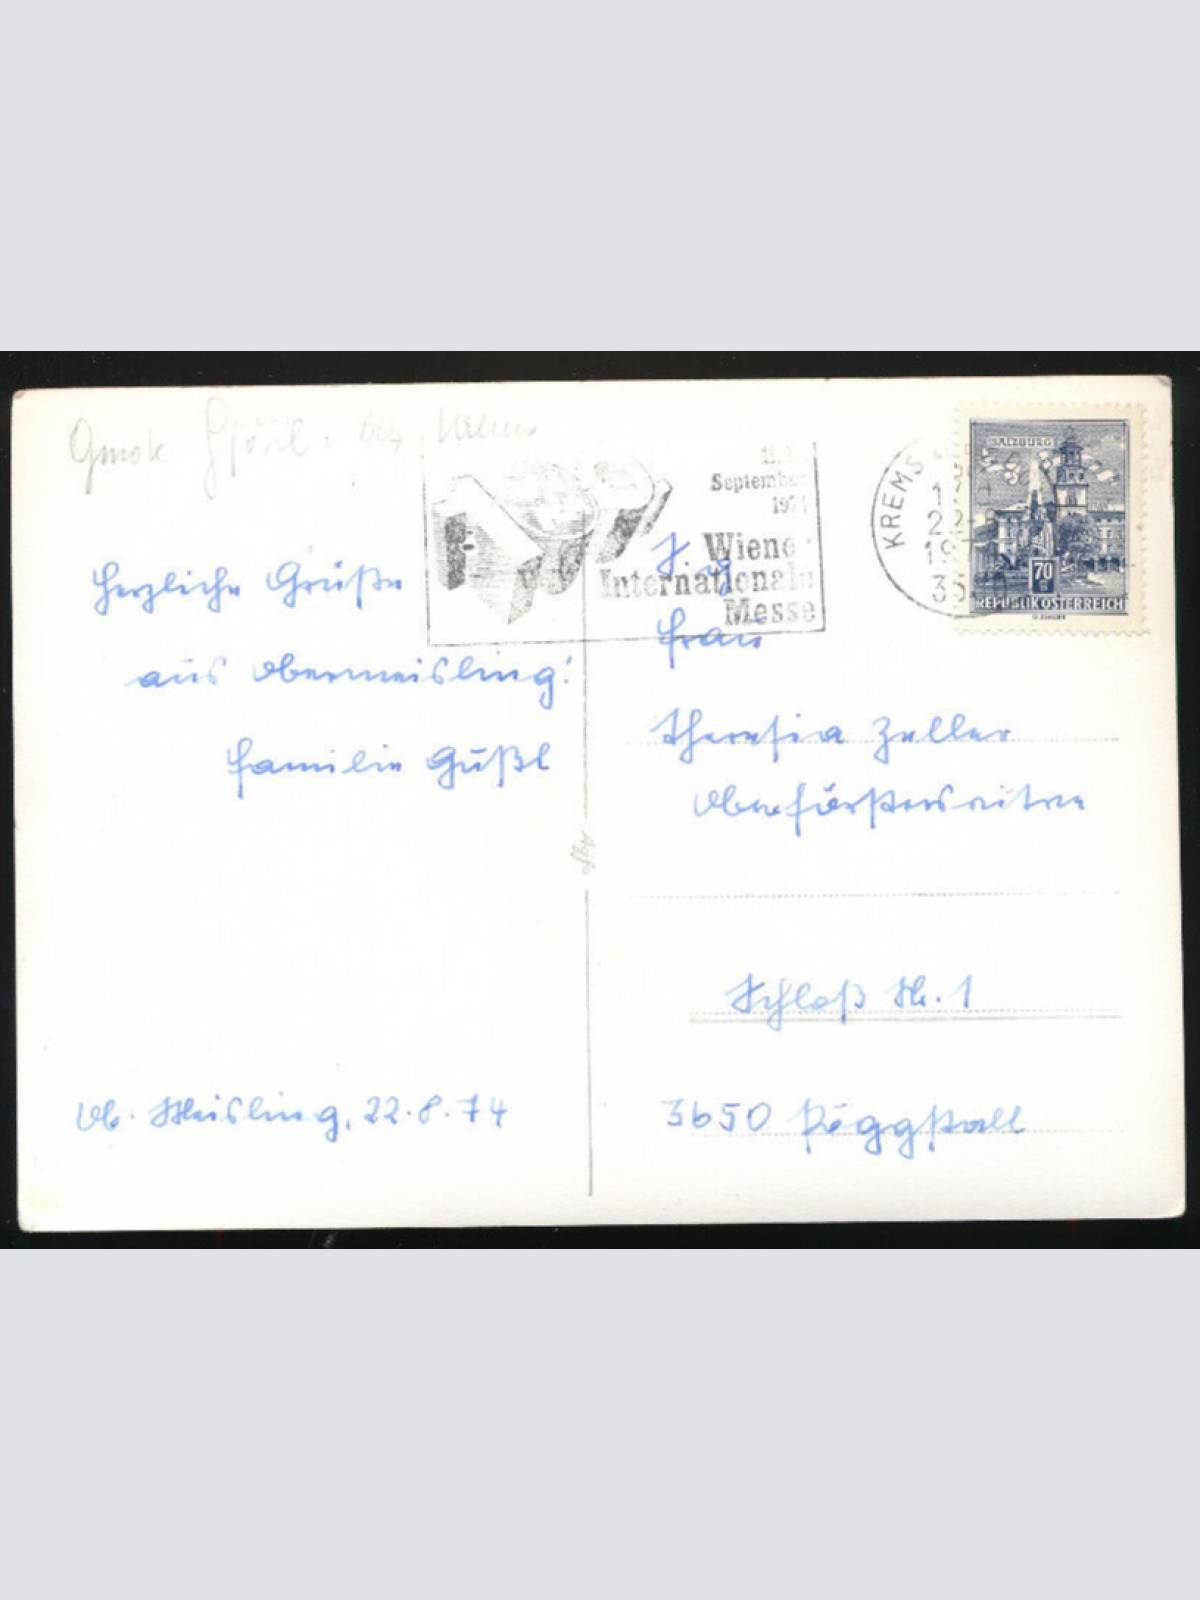 Gföhl. Bez. Krems
September
Wiener
Internationale
Messe
KREMS
22
19
SALZBURG
70
REPUBLIK ÖSTERREICH
Herzliche Grüße
aus Obermeisling!
Familie Güßl
Ob. Meisling, 22.8.74
Agfa
Frau
Theresia Zeller
Oberförsterswitwe
Schloß Str. 1
3650 Pöggstall